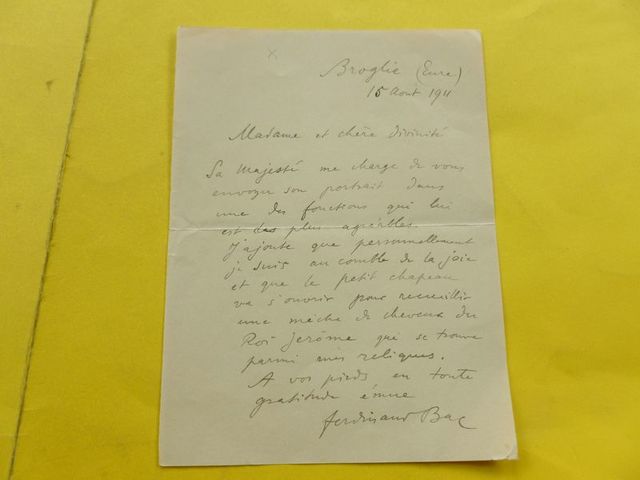 Broglie (Eure)
15 Août 1911
Madame et chère divinité
Sa Majesté me charge de vous
envoyer son portrait dans
une des fonctions qui lui
est des plus agréables.
J'ajoute que personnellement
je suis au comble de la joie
et que le petit chapeau
va s'ouvrir pour recueillir
une mèche de cheveux du
Roi Jérôme qui se trouve
parmi mes reliques.
A vos pieds en toute
gratitude émue
Ferdinand Bac